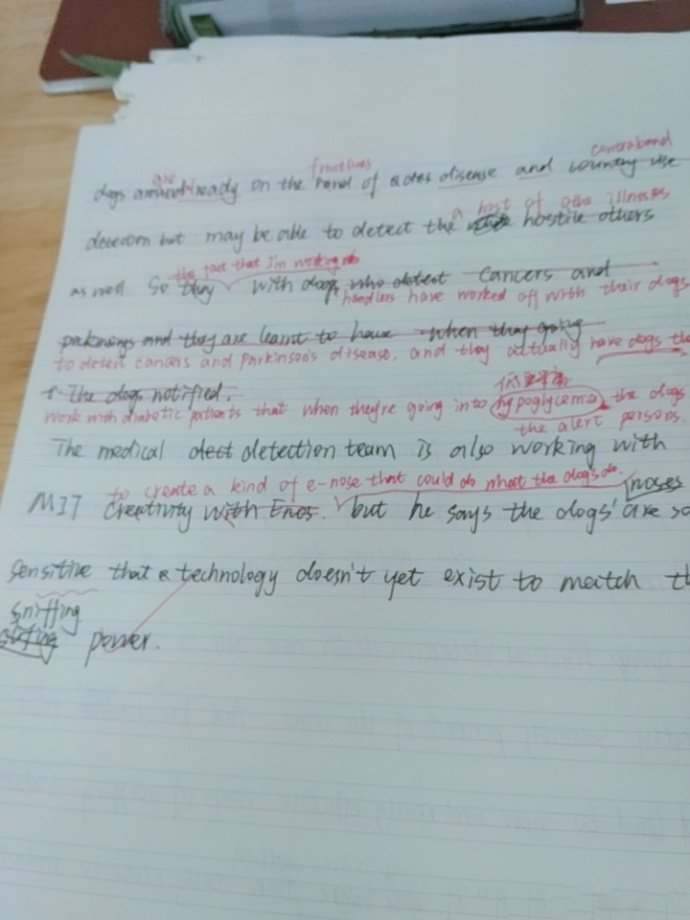 contraband
are frontlines
dogs already on the band of disease and boundary use
a host of othe illnesses
detection but may be able to detect the hostile others
the fact that I'm working
as well So they with dogs who detect cancers and
handlers have worked off with their dogs
parkinsings and they are learnt to have when they going
to detect cancers and parkinson's disease, and they actually have dogs tha
The dogs notified.
低血糖
work with diabetic patients that when they're going into hypoglycemia the dogs
the alert persons.
The medical detect detection team is also working with
to create a kind of e-nose that could do what the dogs do. noses
MIT Creativity with Enos. but he says the dogs' are so
sensitive that a technology doesn't yet exist to match th
sniffing
power.